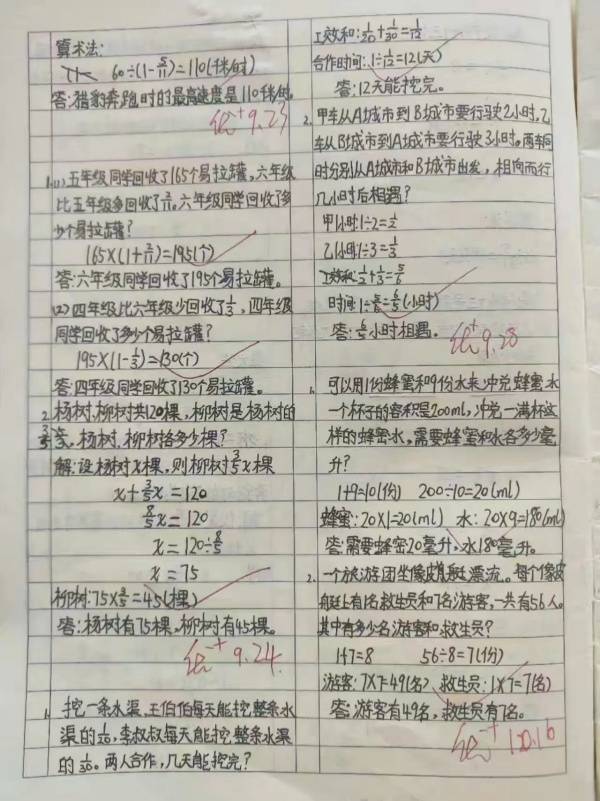 算术法:
60÷(1-5/11)=110(千米/时)
答:猎豹奔跑时的最高速度是110千米/时。
9.23
1.(1)五年级同学回收了165个易拉罐,六年级
比五年级多回收了2/11。六年级同学回收了多
少个易拉罐?
165×(1+2/11)=195(个)
答:六年级同学回收了195个易拉罐。
(2)四年级比六年级少回收了1/3,四年级
同学回收了多少个易拉罐?
195×(1-1/3)=130(个)
答:四年级同学回收了130个易拉罐。
2.杨树、柳树共120棵,柳树是杨树的
3/5,杨树、柳树各多少棵?
解:设杨树x棵,则柳树3/5x棵
x+3/5x=120
8/5x=120
x=120÷8/5
x=75
柳树:75×3/5=45(棵)
答:杨树有75棵,柳树有45棵。
9.24
1.挖一条水渠,王伯伯每天能挖整条水
渠的1/20,李叔叔每天能挖整条水渠
的1/30。两人合作,几天能挖完?
工效和:1/20+1/30=1/12
合作时间:1÷1/12=12(天)
答:12天能挖完。
2.甲车从A城市到B城市要行驶2小时,乙
车从B城市到A城市要行驶3小时。两车同
时分别从A城市和B城市出发,相向而行
几小时后相遇?
甲1小时:1÷2=1/2
乙1小时:1÷3=1/3
工效和:1/2+1/3=5/6
时间:1÷5/6=6/5(小时)
答:6/5小时相遇。
9.28
1.可以用1份蜂蜜和9份水来冲兑蜂蜜水
一个杯子的容积是200ml,冲兑一满杯这
样的蜂蜜水,需要蜂蜜和水各多少毫
升?
1+9=10(份) 200÷10=20(ml)
蜂蜜:20×1=20(ml) 水:20×9=180(ml)
答:需要蜂蜜20毫升,水180毫升。
2.一个旅游团坐橡皮艇漂流。每个橡皮
艇上有1名救生员和7名游客,一共有56人。
其中有多少名游客和救生员?
1+7=8 56÷8=7(份)
游客:7×7=49(名) 救生员:1×7=7(名)
答:游客有49名,救生员有7名。
10.16